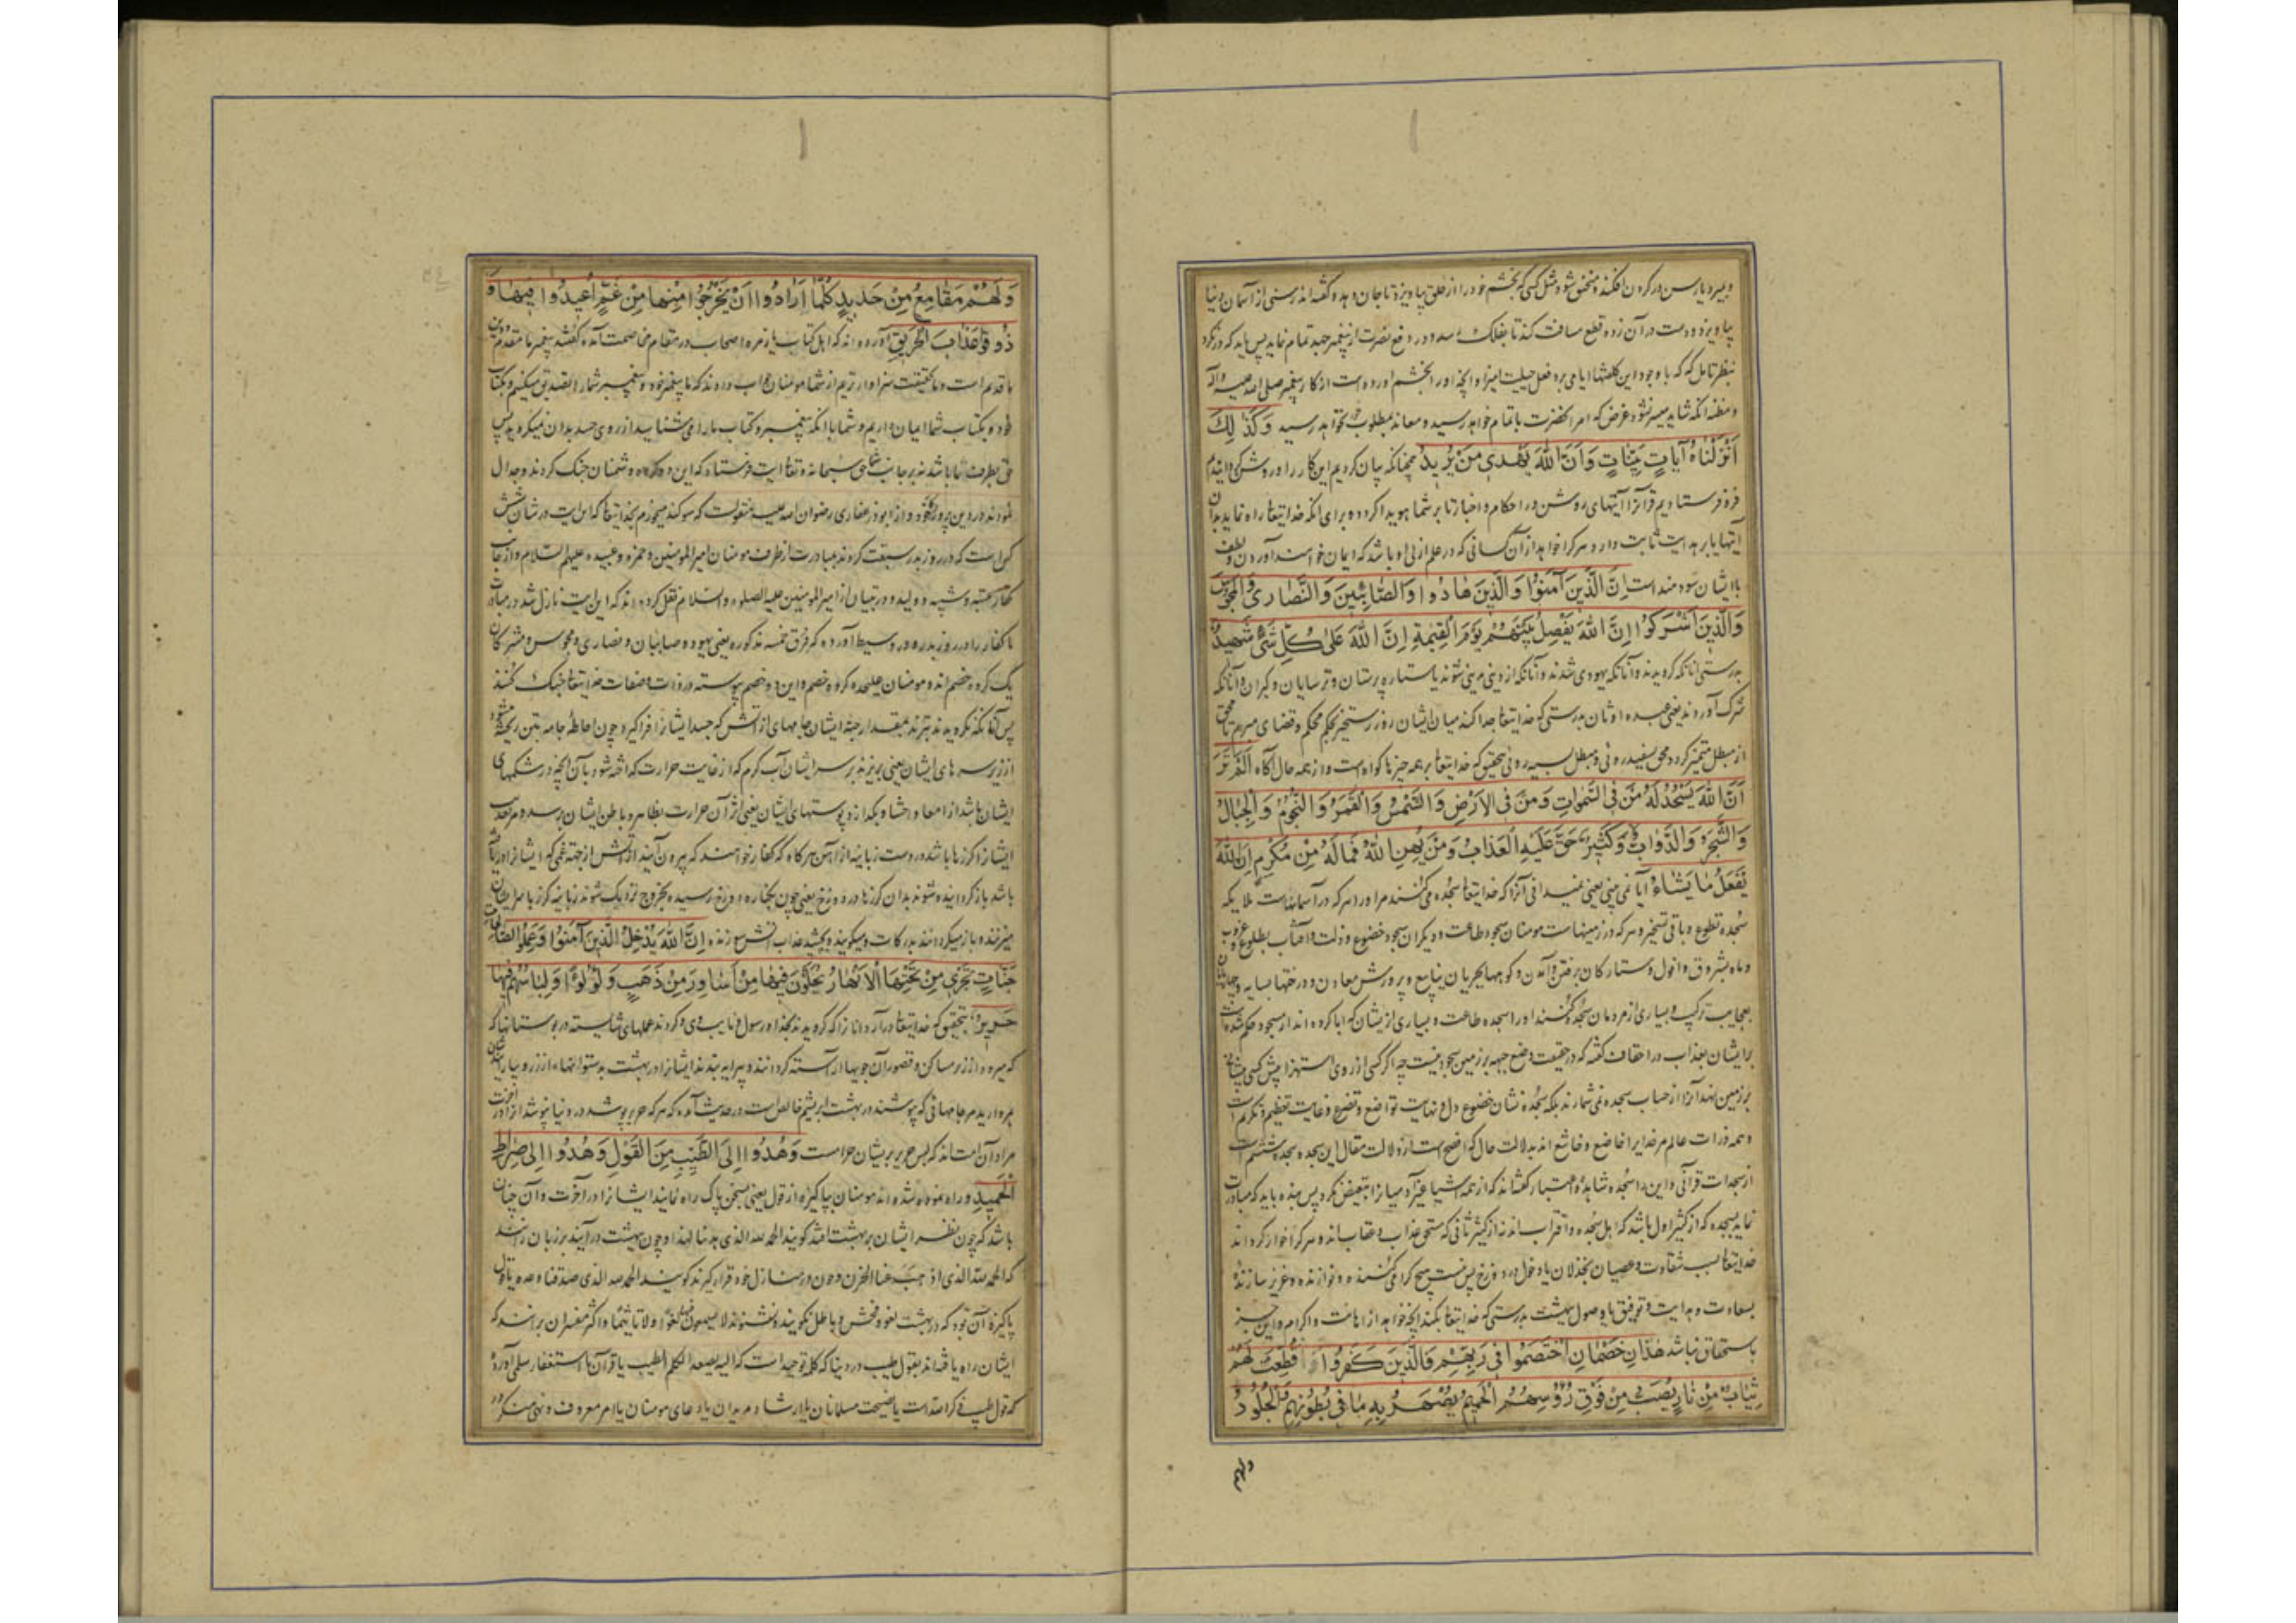 و بمیرد یا رسن در کردن افکند و مختنق شود مثل کسی که بخشم خود را از حلق بیاویزد تا جان دهد و گفته‌اند رسنی از آسمان دنیا
بیاویزد و دست در آن زده قطع مسافت کند تا بفلک رسد و در دفع نصرت از پیغمبر جهد تمام نماید پس باید که در نکرد
بنظر تامل که که با وجود این کلفتها ایا می‌برد فعل حیلت امیز او آنچه او را بخشم آورده است از کار پیغمبر صلی الله علیه و آله
و مظنه آنکه شاید میسر نشود غرض که امر آنحضرت باتمام خواهد رسید و معاند بمطلوب خود نخواهد رسید وَكَذٰلِكَ
اَنْزَلْنَاهُ آيَاتٍ بَيِّنَاتٍ وَاَنَّ اللّٰهَ يَهْدِى مَنْ يُرِيدُ همچنانکه بیان کردیم این کار را و روشن کردانیدیم
فرو فرستادیم قرآنرا آیتهای روشن در احکام و اخبار تا بر شما هویدا کردد و برای آنکه خدایتعا راه نماید بدان
آیتها یا بر هدایت ثابت دارد هر کرا خواهد از آن کسانی که در علم ازلی او باشد که ایمان خواهند آورد و لطف
با ایشان سودمند است اِنَّ الَّذِينَ آمَنُوا وَالَّذِينَ هَادُوا وَالصَّابِئِينَ وَالنَّصَارٰى وَالْمَجُوسَ
وَالَّذِينَ اَشْرَكُوا اِنَّ اللّٰهَ يَفْصِلُ بَيْنَهُمْ يَوْمَ الْقِيٰمَةِ اِنَّ اللّٰهَ عَلٰى كُلِّ شَئٍ شَهِيدٌ
بدرستی آنانکه کرویدند و آنانکه یهودی شدند و آنانکه از دینی بدینی شوند یا ستاره پرستان و ترسایان و کبران و آنانکه
شرک آوردند یعنی عبده اوثان بدرستی که خدایتعا جدا کند میان ایشان روز رستخیز بحکم محکم و قضای مبرم تا محق
از مبطل متمیز کردد محق سفید روئی و مبطل سیه روئی بتحقیق که خدایتعا بر همه چیزها کواه است و از همه حال آکاه اَلَمْ تَرَ
اَنَّ اللّٰهَ يَسْجُدُ لَهُ مَنْ فِى السَّمٰوَاتِ وَمَنْ فِى الْاَرْضِ وَالشَّمْسُ وَالْقَمَرُ وَالنُّجُومُ وَالْجِبَالُ
وَالشَّجَرُ وَالدَّوَابُّ وَكَثِيرٌ حَقَّ عَلَيْهِ الْعَذَابُ وَمَنْ يُهِنِ اللّٰهُ فَمَا لَهُ مِنْ مُكْرِمٍ اِنَّ اللّٰهَ
يَفْعَلُ مَا يَشَاءُ آیا نمی بینی یعنی نمیدانی آنرا که خدایتعا سجده میکنند مر او را هر که در آسمانهاست ملایکه
سجده تطوع و باقی تسخیر و هر که در زمینهاست مومنان سجود طاعت و دیکران سجود خضوع و ذلت و آفتاب بطلوع و غروب
و ماه بشروق و افول و ستارکان برفتن و آمدن و کوهها بجریان ینابیع و پرورش معادن و درختها بسایه و چهارپایان
بعجایب ترکیب و بسیاری از مردمان سجده کنند او را سجده طاعت و بسیاری از یشان که ابا کرده‌اند از سجود حکم شده است
بر ایشان بعذاب در احقاف گفته که در حقیقت وضع جبهه بر زمین سجود نیست چه اکر کسی از روی استهزا پیش کسی پیشانی
بر زمین نهد آنرا از حساب سجده نمی شمارند بلکه سجده نشان خضوع دل و نهایت تواضع و تضرع و غایت تعظیم و تکریم است
و همه ذرات عالم مر خدایرا خاضع و خاشع اند بدلالت حال که افصح است از دلالت مقال این سجده سجده ششم است
از سجدات قرآنی و این را سجده شاهده و اعتبار گفته‌اند که از همه اشیا غیر آدمیان را تبعیض نکرد پس بنده باید که مبادرت
نماید بسجده که از کثیر اول باشد که اهل سجده و اقتراب اند نه از کثیر ثانی که مستحق عذاب و عقاب اند و هر کرا خوار کرداند
خدایتعا بسبب شقاوت و عصیان بخذلان یا دخول در دوزخ پس نیست هیچ کرامی کننده و نوازنده و عزیز سازنده
بسعادت و هدایت و توفیق یا وصول بهشت بدرستی که خدایتعا بکند آنچه خواهد از اهانت و اکرام و این جز
باستحقاق نباشد هٰذَانِ خَصْمَانِ اخْتَصَمُوا فِى رَبِّهِمْ فَالَّذِينَ كَفَرُوا قُطِّعَتْ لَهُمْ
ثِيَابٌ مِنْ نَارٍ يُصَبُّ مِنْ فَوْقِ رُؤُسِهِمُ الْحَمِيمُ يُصْهَرُ بِهِ مَا فِى بُطُونِهِمْ وَالْجُلُودُ
ولهم
وَلَهُمْ مَقَامِعُ مِنْ حَدِيدٍ كُلَّمَا اَرَادُوا اَنْ يَخْرُجُوا مِنْهَا مِنْ غَمٍّ اُعِيدُوا فِيهَا وَ
ذُوقُوا عَذَابَ الْحَرِيقِ آورده‌اند که اهل کتاب با زمره اصحاب در مقام مخاصمت آمده گفتند پیغمبر ما مقدم و دین
ما قدیم است و ما بحقیقت سزاوارتریم از شما مومنان جواب دادند که ما پیغمبر خود و پیغمبر شما را تصدیق میکنیم و بکتاب
خود و بکتاب شما ایمان داریم و شما با آنکه پیغمبر و کتاب ما را می شناسید از روی حسد بدان نمیکروید پس
حق بطرف ما باشد نه بر جانب شما حق سبحانه و تعا این آیت فرستاد که این دو کروه دشمنان جنک کردند و جدال
نمودند در دین پروردکار خود و از ابوذر غفاری رضوان الله علیه منقولست که سوکند میخورم بخدایتعا که این آیت در شان شش
کس است که در روز بدر سبقت کردند بمبادرت از طرف مومنان امیر المومنین و حمزه و عبیده علیهم السلام و از جانب
کفار عتبه و شیبه و ولید و در تبیان از امیر المومنین علیه الصلوة و السلام نقل کرده‌اند که این آیت نازل شد در مبارزت
ما کفار را در روز بدر و در وسیط آورده که فرق خمسه مذکوره یعنی یهود و صابیان و نصاری و مجوس و مشرکان
یک کروه خصم اند و مومنان علیحده کروه خصم و این دو خصم پیوسته در ذات و صفات خدایتعا جنک کنند
پس آنانکه نکرویدند بریدند بمقدار جثه ایشان جامهای از آتش که جسد ایشانرا فراکیرد چون احاطه جامه بتن ریخته شود
از زبر سرهای ایشان یعنی بریزند بر سر ایشان آب کرم که از غایت حرارت کداخته شود بآن آنچه در شکمهای
ایشان باشد از امعا و احشا و بکدازد پوستهای ایشان یعنی اثر آن حرارت بظاهر و باطن ایشان برسد و مر عذاب
ایشانرا کرزها باشد در دست زبانیه از آهن هر کاه که کفار خواهند که بیرون آیند از آتش از جهة غمی که ایشانرا
باشد باز کردانیده شوند بدان کرزها در دوزخ یعنی چون بکناره دوزخ رسیده بخروج نزدیک شوند زبانیه کرز بر سر ایشان
میزنند و باز میکردانند بدرکات و میکویند و بچشید عذاب آتش سوزنده اِنَّ اللّٰهَ يُدْخِلُ الَّذِينَ آمَنُوا وَعَمِلُوا الصَّالِحَاتِ
جَنَّاتٍ تَجْرِى مِنْ تَحْتِهَا الْاَنْهَارُ يُحَلَّوْنَ فِيهَا مِنْ اَسَاوِرَ مِنْ ذَهَبٍ وَلُؤْلُؤًا وَلِبَاسُهُمْ فِيهَا
حَرِيرٌ بتحقیق که خدایتعا درآرد آنانرا که کرویدند بخدا و رسول و نایب وی و کردند عملهای شایسته در بوستانها که
که میرود از زیر مساکن و قصور آن جویها آراسته کردانند و پیرایه بندند ایشانرا در بهشت بدستوانها از زر و بیارایند ایشان
بمروارید و جامهائی که پوشند در بهشت ابریشم خالص است در حدیث آمده که هر که حریر بپوشد در دنیا نپوشد آنرا در آخرت
مراد آن امت‌اند که لبس حریر بر یشان حرامست وَهُدُوا اِلَى الطَّيِّبِ مِنَ الْقَوْلِ وَهُدُوا اِلٰى صِرَاطِ
الْحَمِيدِ و راه نموده شده‌اند مومنان بپاکیزه از قول یعنی بسخن پاک راه نمایند ایشانرا در آخرت و آن چنان
باشد که چون نظر ایشان بر بهشت افتد کویند الحمد لله الذی هدینا لهذا و چون ببهشت درآیند بر زبان رانند
که الحمد لله الذی اذهب عنا الحزن و چون در منازل خود قرار کیرند کویند الحمد لله الذی صدقنا وعده یا قول
پاکیزه آن بود که در بهشت لغو و فحش و باطل نکویند و نشنوند لا یسمعون فیها لغوا و لا تاثیما و اکثر مفسران برانند که
ایشان راه یافته‌اند بقول طیب در دنیا که کلمه توحید است که الیه یصعد الکلم الطیب یا قرآن یا استغفار سلمی آورده
که قول طیب ذکر الله است یا نصیحت مسلمانان یا ارشاد مریدان یا دعای مومنان یا امر معروف و نهی منکر